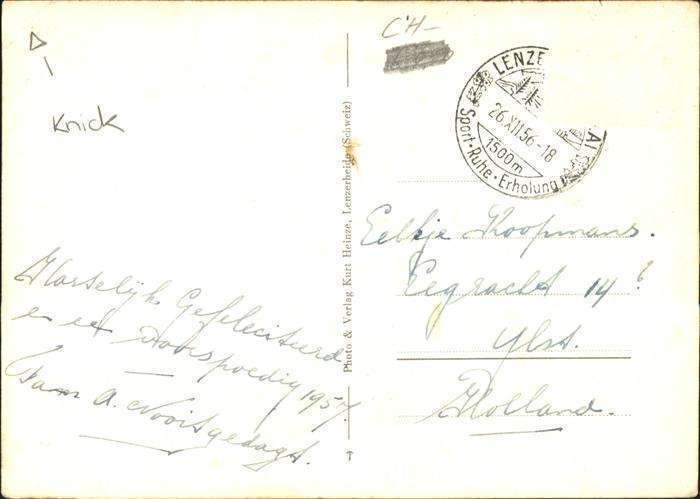 CH-
Knick
LENZE
26.XII.56-18
1500m
Sport·Ruhe·Erholung
Photo & Verlag Kurt Heinze, Lenzerheide (Schweiz)
Eelkje Koopmans.
Eegracht 14?
Ylst.
Holland.
Harselijk Gefeliciteerd
en een Voorspoedig 1957.
Fam A. Nooitgedagt.